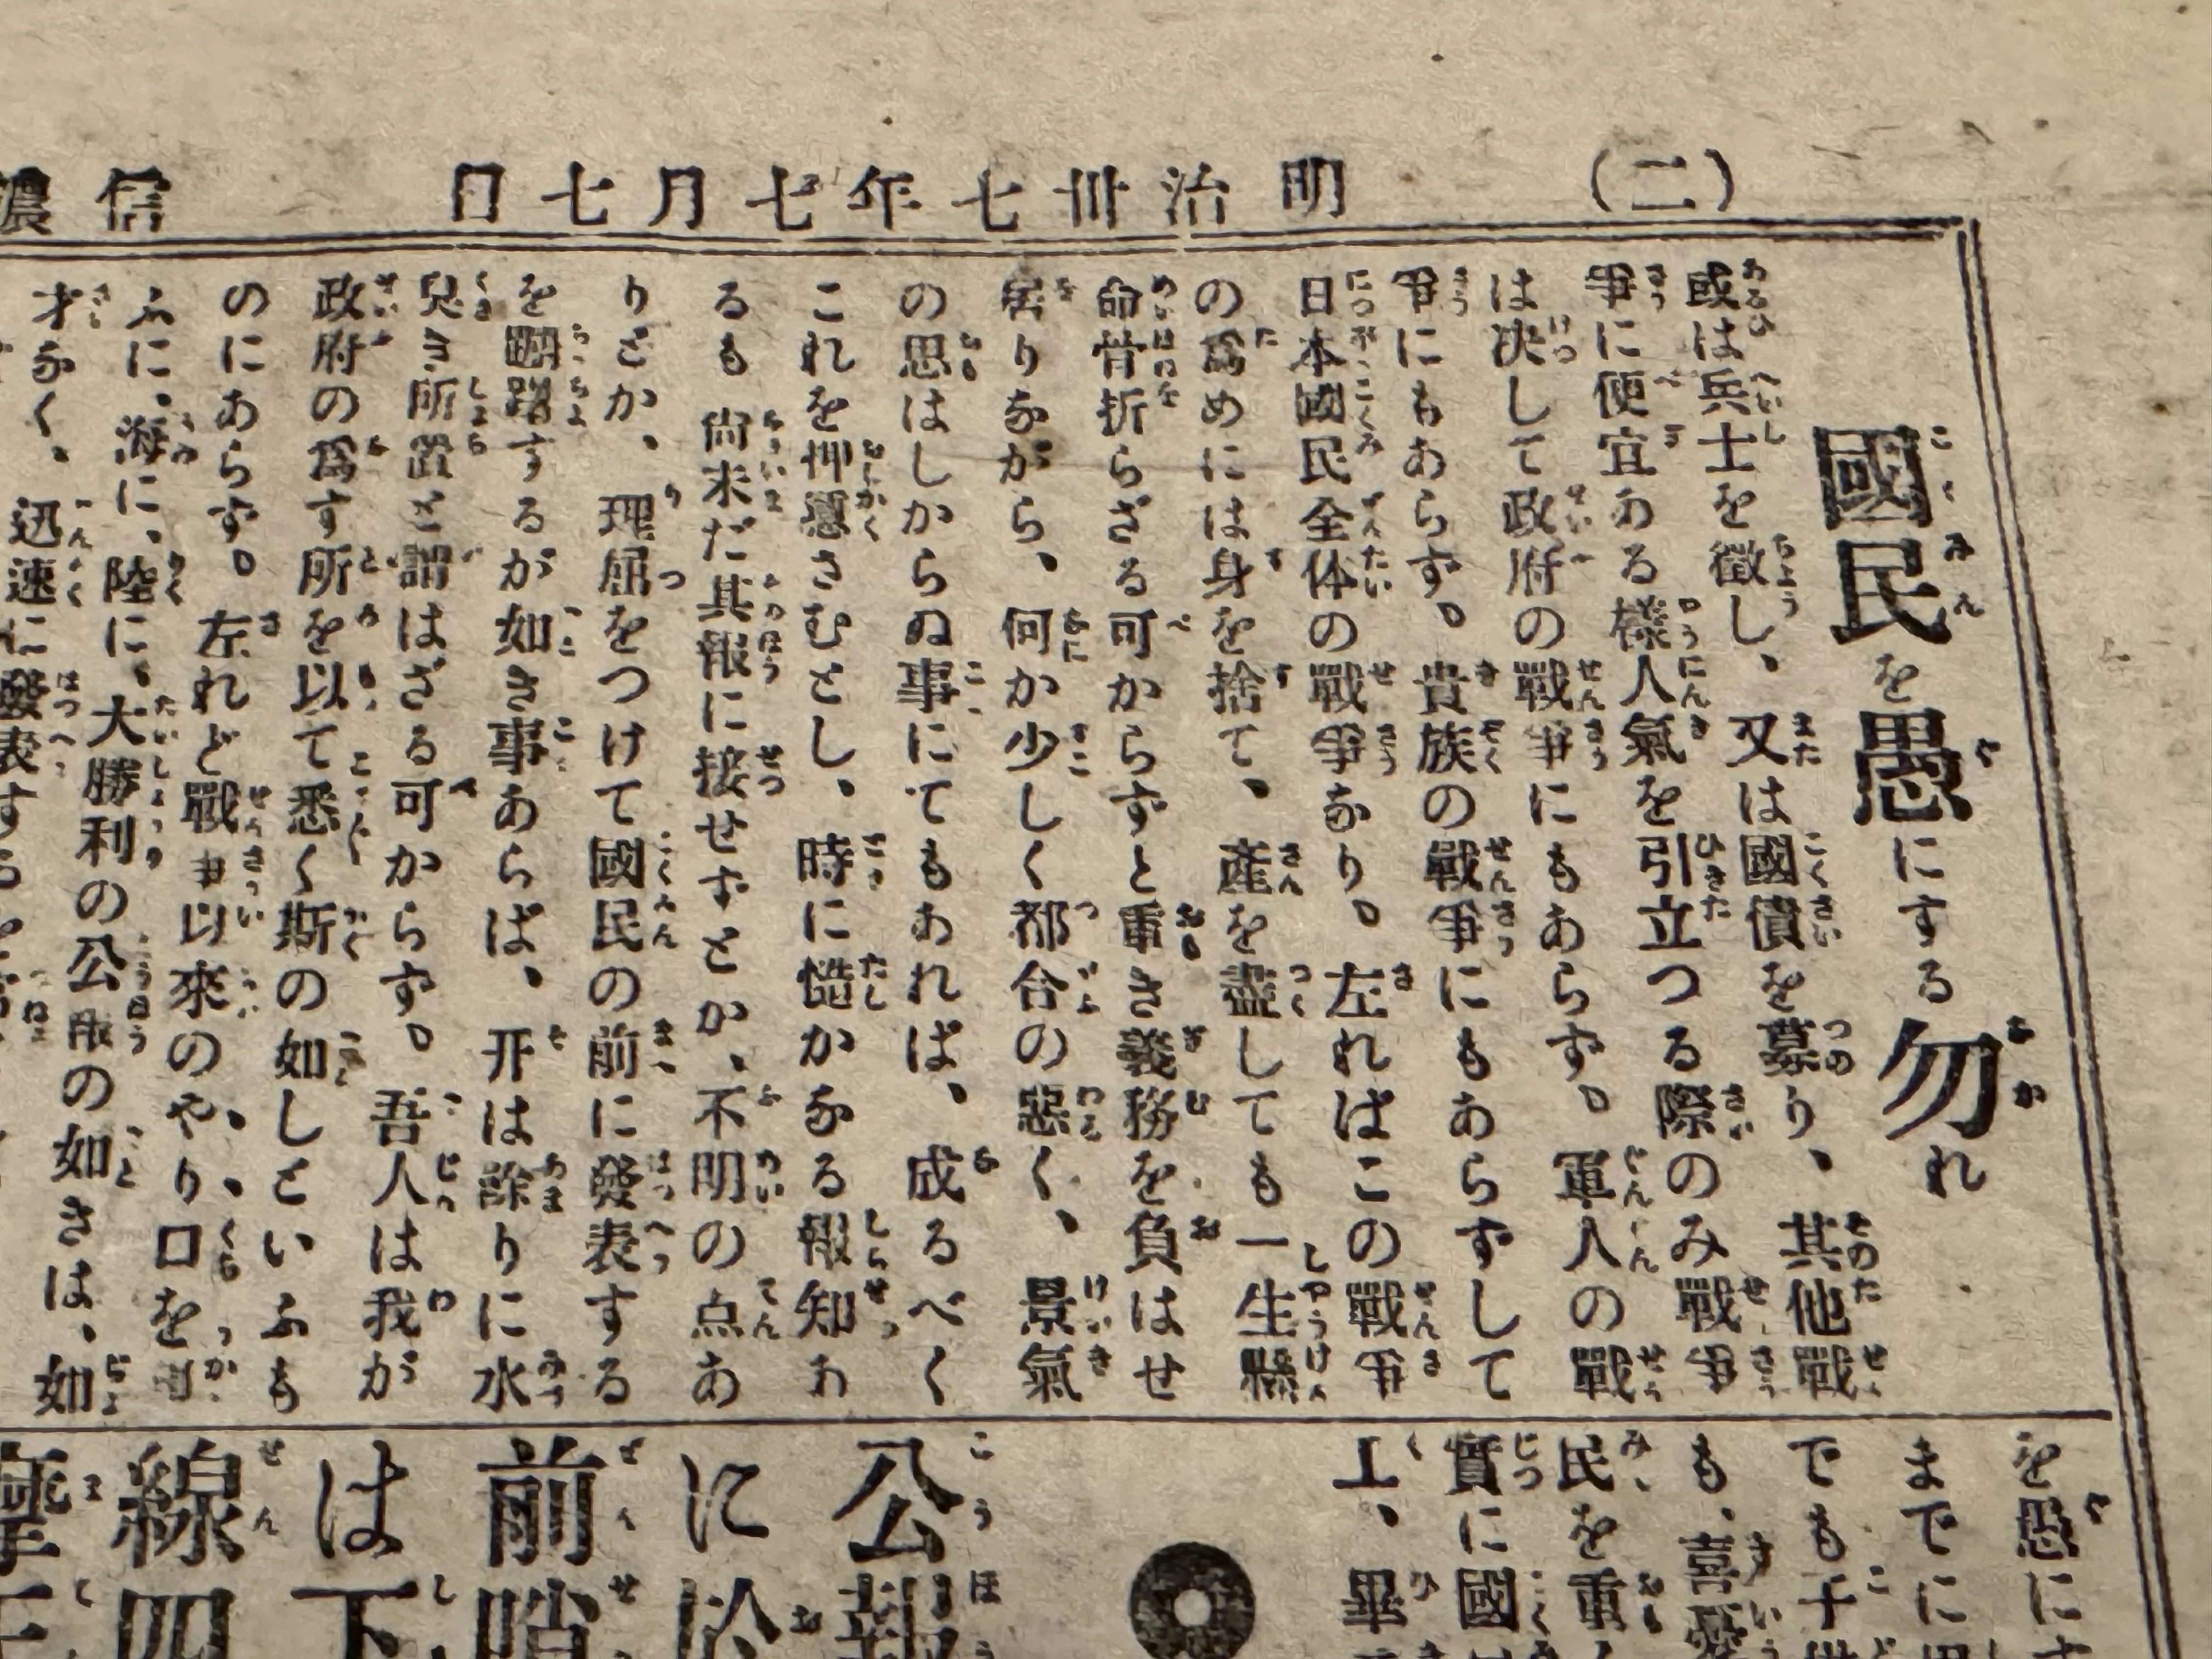 (二)　明治卅七年七月七日　信濃
國民を愚にする勿れ
或は兵士を徴し、又は國債を募り、其他戰
爭に便宜ある樣人氣を引立つる際のみ戰爭
は決して政府の戰爭にもあらず。軍人の戰
爭にもあらず。貴族の戰爭にもあらずして
日本國民全体の戰爭なり。左ればこの戰爭
の爲めには身を捨て、產を盡しても一生懸
命骨折らざる可からずと重き義務を負はせ
居りながら、何か少しく都合の惡く、景氣
の思はしからぬ事にてもあれば、成るべく
これを押隱さむとし、時に慥かなる報知あ
るも尚未だ其報に接せずとか、不明の点あ
りとか、理屈をつけて國民の前に發表する
を躊躇するが如き事あらば、开は餘りに水
臭き所置と謂はざる可からず。吾人は我が
政府の爲す所を以て悉く斯の如しといふも
のにあらず。左れど戰爭以來のやり口を
ふに、海に、陸に、大勝利の公報の如きは、如
才なく、迅速に發表す
を愚に
までに
でも子
も、喜
民を重
實に國
上、畢
公報
に於
前哨
は下
線四